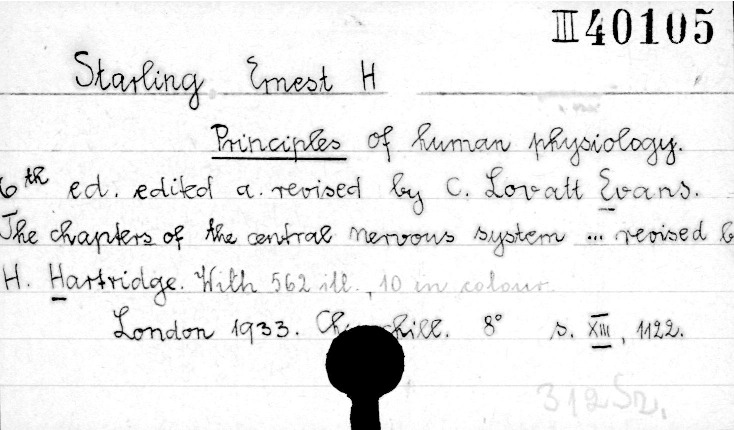 III 40105
Starling Ernest H
Principles of human physiology.
6th ed. edited a. revised by C. Lovatt Evans.
The chapters of the central nervous system ... revised b
H. Hartridge. With 562 ill., 10 in colour
London 1933. Churchill. 8° s. XIII, 1122.